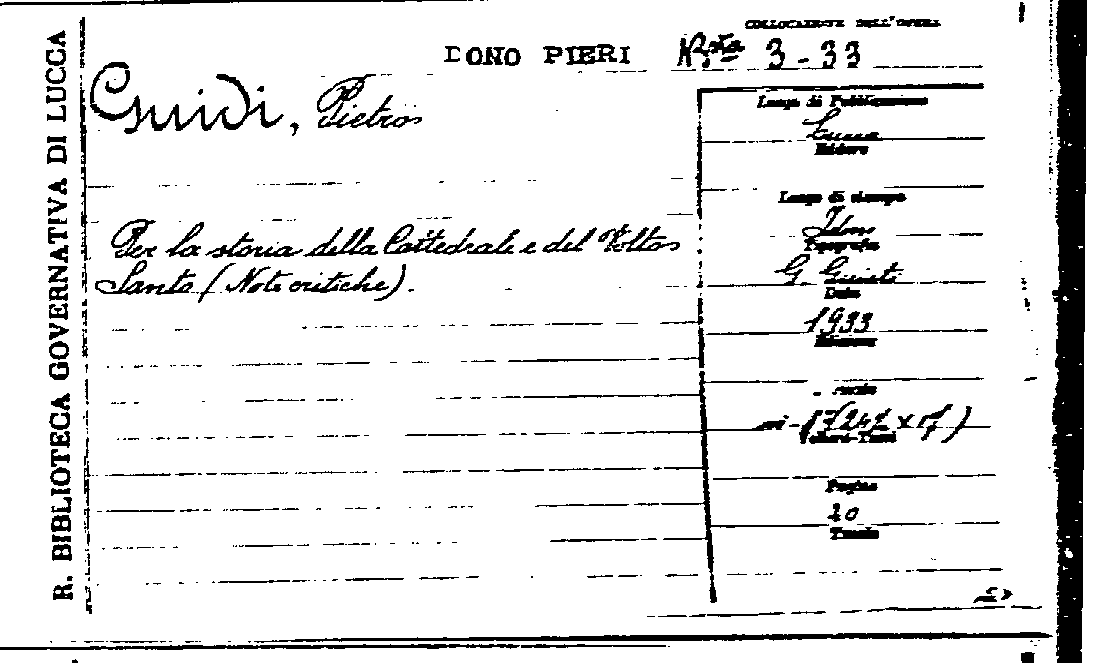 R. BIBLIOTECA GOVERNATIVA DI LUCCA
COLLOCAZIONE DELL'OPERA
DONO PIERI
3-33
Guidi, Pietro
Per la storia della Cattedrale e del Volto
Santo (Note critiche).
Luogo di Pubblicazione
Lucca
Editore
Luogo di stampa
Idem
Tipografia
G. Giusti
Data
1933
Edizione
Volumi-Tomi
Pagine
20
Tavole